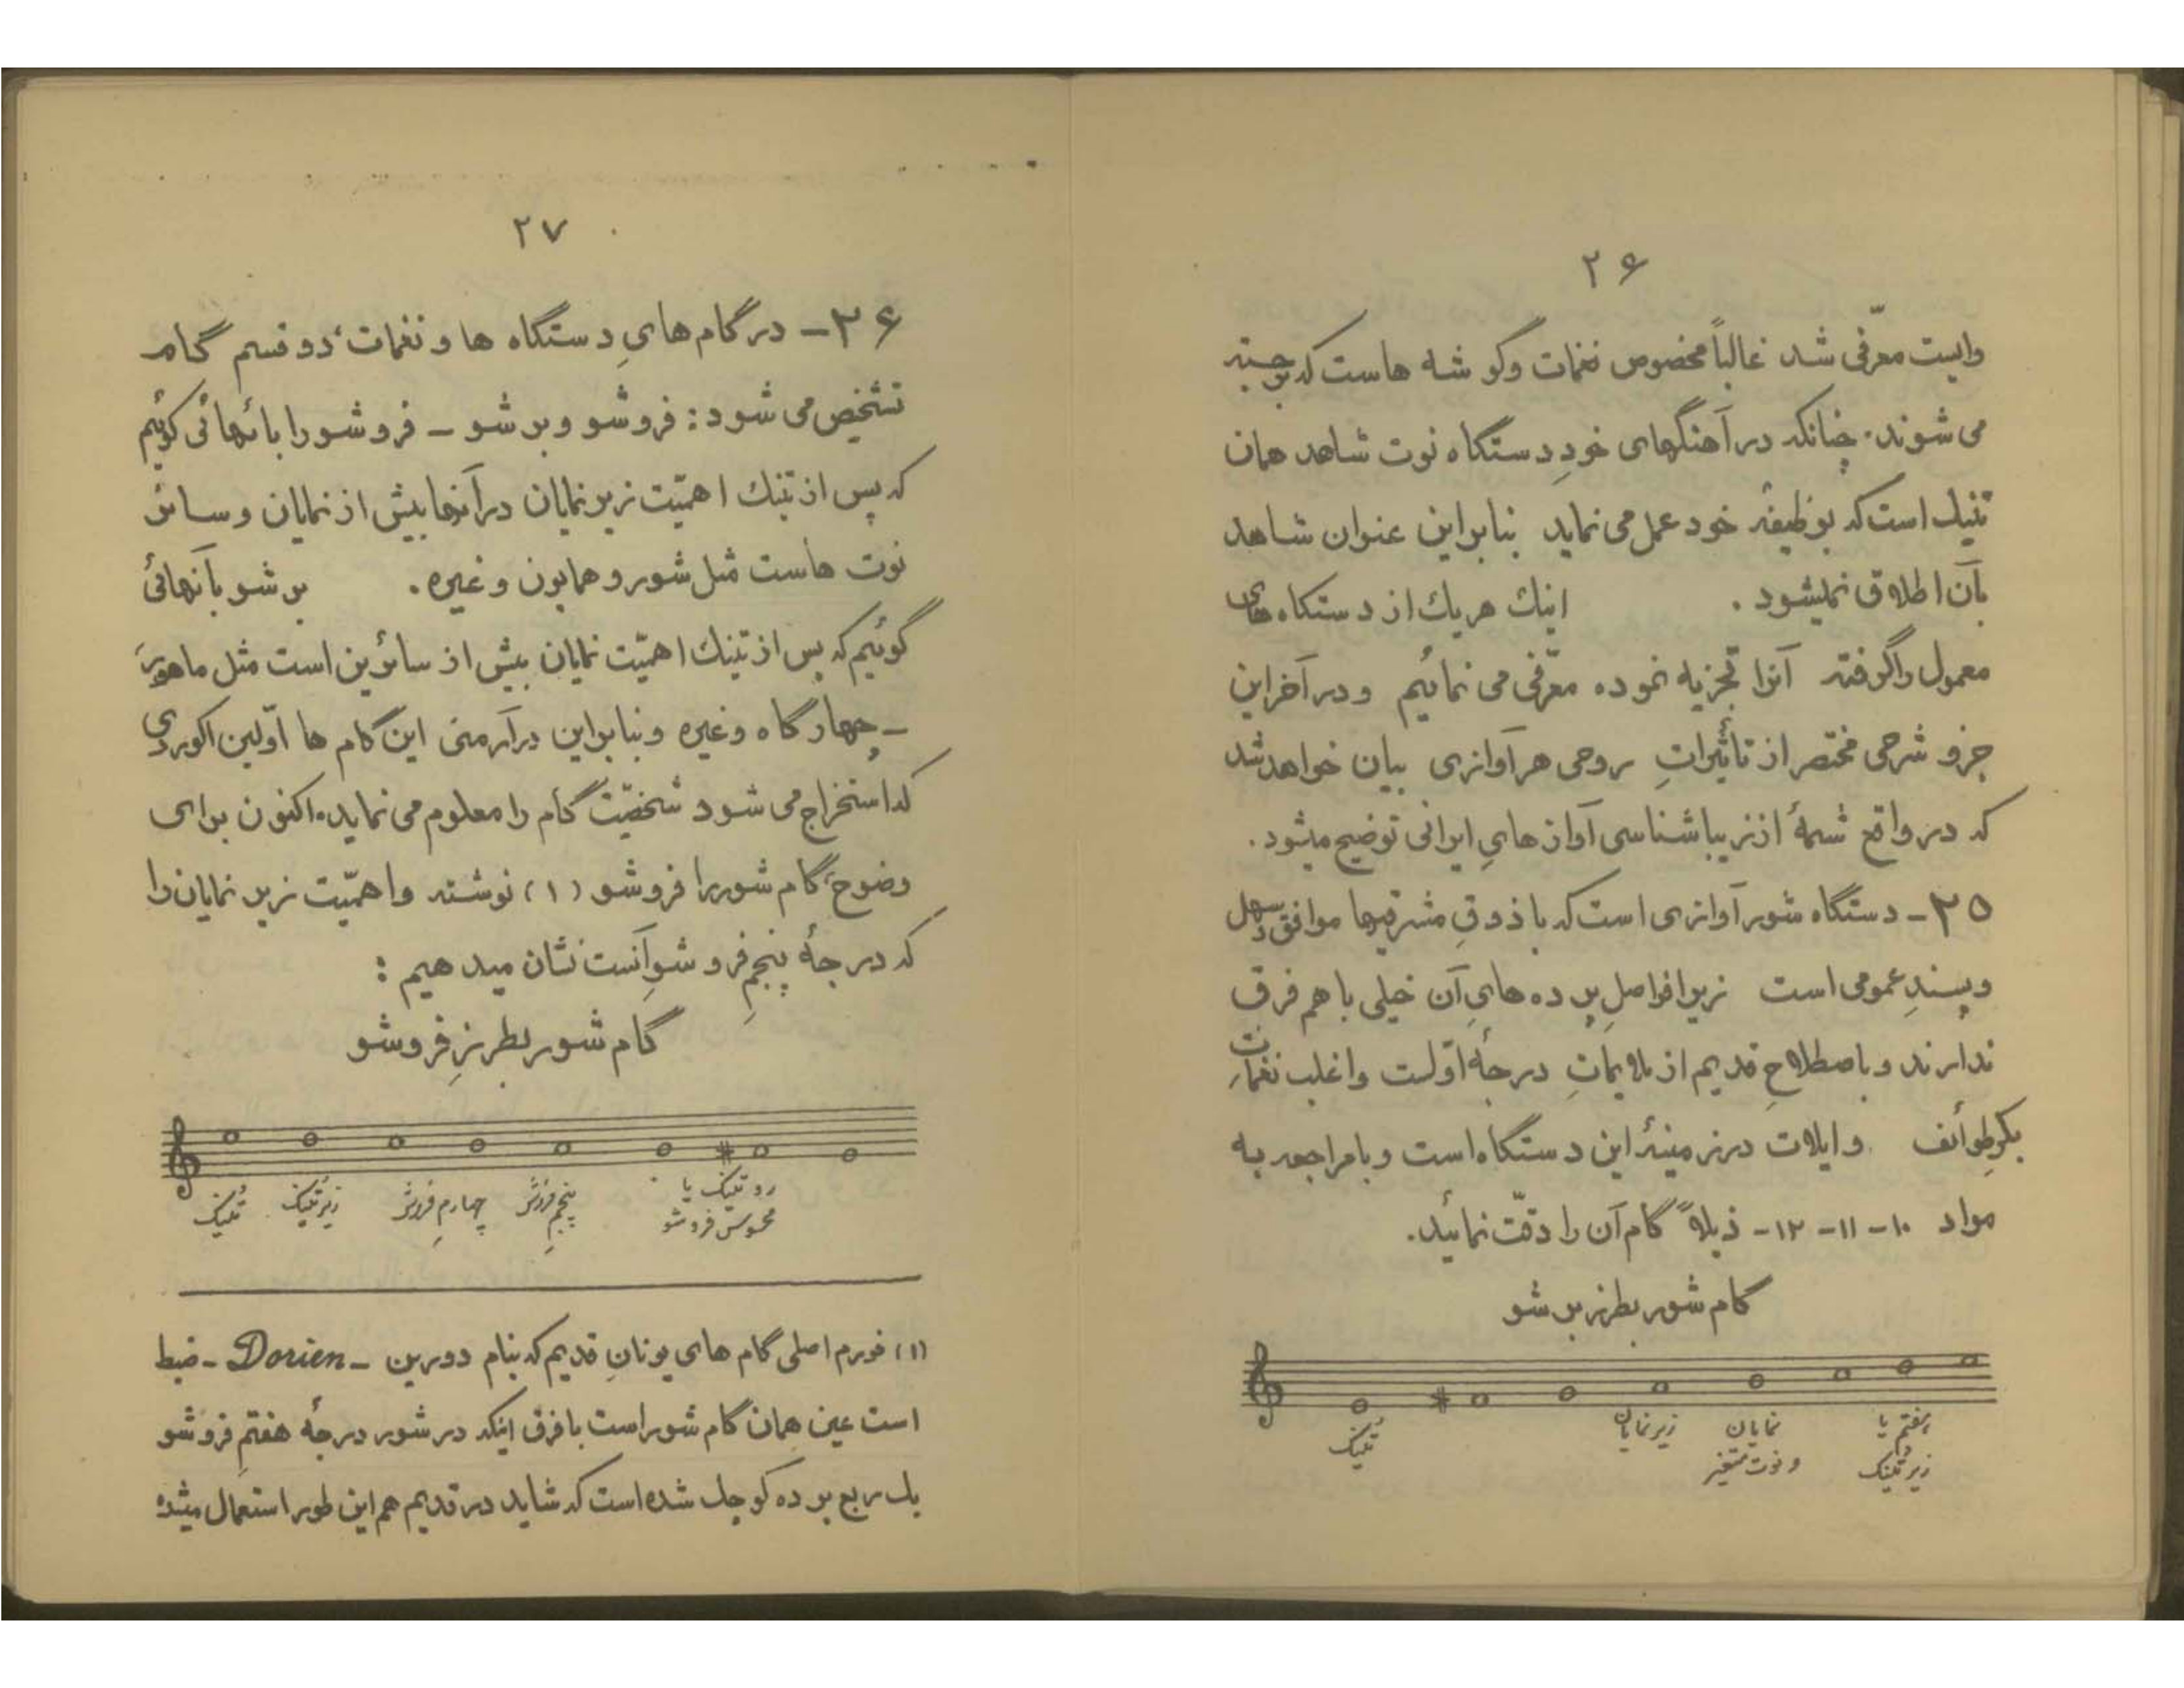 ۲۶
وایست معرّفی شد غالباً مخصوص نغمات وگوشه هاست که برجسته
می شوند. چنانکه در آهنگهای خودِ دستگاه نوت شاهد همان
تنیک است که بوظیفهٔ خود عمل می نماید بنابراین عنوان شاهد
بآن اطلاق نمیشود . اینك هریك از دستگاه های
معمول را گرفته آنرا تجزیه نموده معرّفی می نمائیم و در آخر این
جزو شرحی مختصر از تأثیراتِ روحی هر آوازی بیان خواهد شد
که در واقع شمهٔ از زیباشناسی آواز هایِ ایرانی توضیح میشود .
۲۵ – دستگاه شور آوازی است که با ذوقِ مشرقیها موافق و سهل
و پسندِ عمومی است زیرا فواصلِ پرده هایِ آن خیلی با هم فرق
ندارند و باصطلاحِ قدیم از ملایماتِ درجهٔ اوّلست و اغلب نغمات
بکرِ طوائف و ایلات در زمینهٔ این دستگاه است و با مراجعه به
مواد ۱۰ – ۱۱ – ۱۲ – ذیلاً گام آن را دقّت نمائید.
گام شور بطرز بر شو
تُنیک زیر نمایان نمایان و نوت متغیر هفتم یا زیر تُنیک
۲۷
۲۶ – در گام هایِ دستگاه ها و نغمات، دو قسم گام
تشخیص می شود : فروشو و بر شو – فروشو را بآنهائی گوئیم
که پس از تنیك اهمیّت زیر نمایان در آنها بیش از نمایان و سائر
نوت هاست مثل شور و همایون و غیره . بر شو بآنهائی
گوئیم که پس از تنیك اهمیّت نمایان بیش از سائرین است مثل ماهور
– چهارگاه و غیره و بنابراین در آرمنی این گام ها اوّلین اکوردی
که استخراج می شود شخصیّت گام را معلوم می نماید. اکنون برای
وضوح، گام شور را فروشو (۱) نوشته و اهمیّت زیر نمایان را
که درجهٔ پنجمِ فروشوِ آنست نشان میدهیم :
گام شور بطرزِ فروشو
تُنیک زیر تُنیک چهارمِ فروشو پنجمِ فروشو رو تنیک یا محسوس فروشو
(۱) فورم اصلی گام های یونانِ قدیم که بنام دورین – Dorien – ضبط
است عین همان گام شور است با فرق اینکه در شور درجهٔ هفتمِ فروشو
یك ربع پرده کوچك شده است که شاید در قدیم هم این طور استعمال میشده